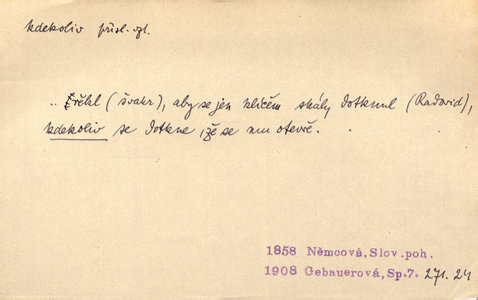 kdekoliv přísl. vzt.
.. řekl (švakr), aby se jen klíčem skály dotknul (Radovid),
kdekoliv se dotkne, že se mu otevře.
1858 Němcová, Slov. poh.
1908 Gebauerová, Sp.7. 271. 24